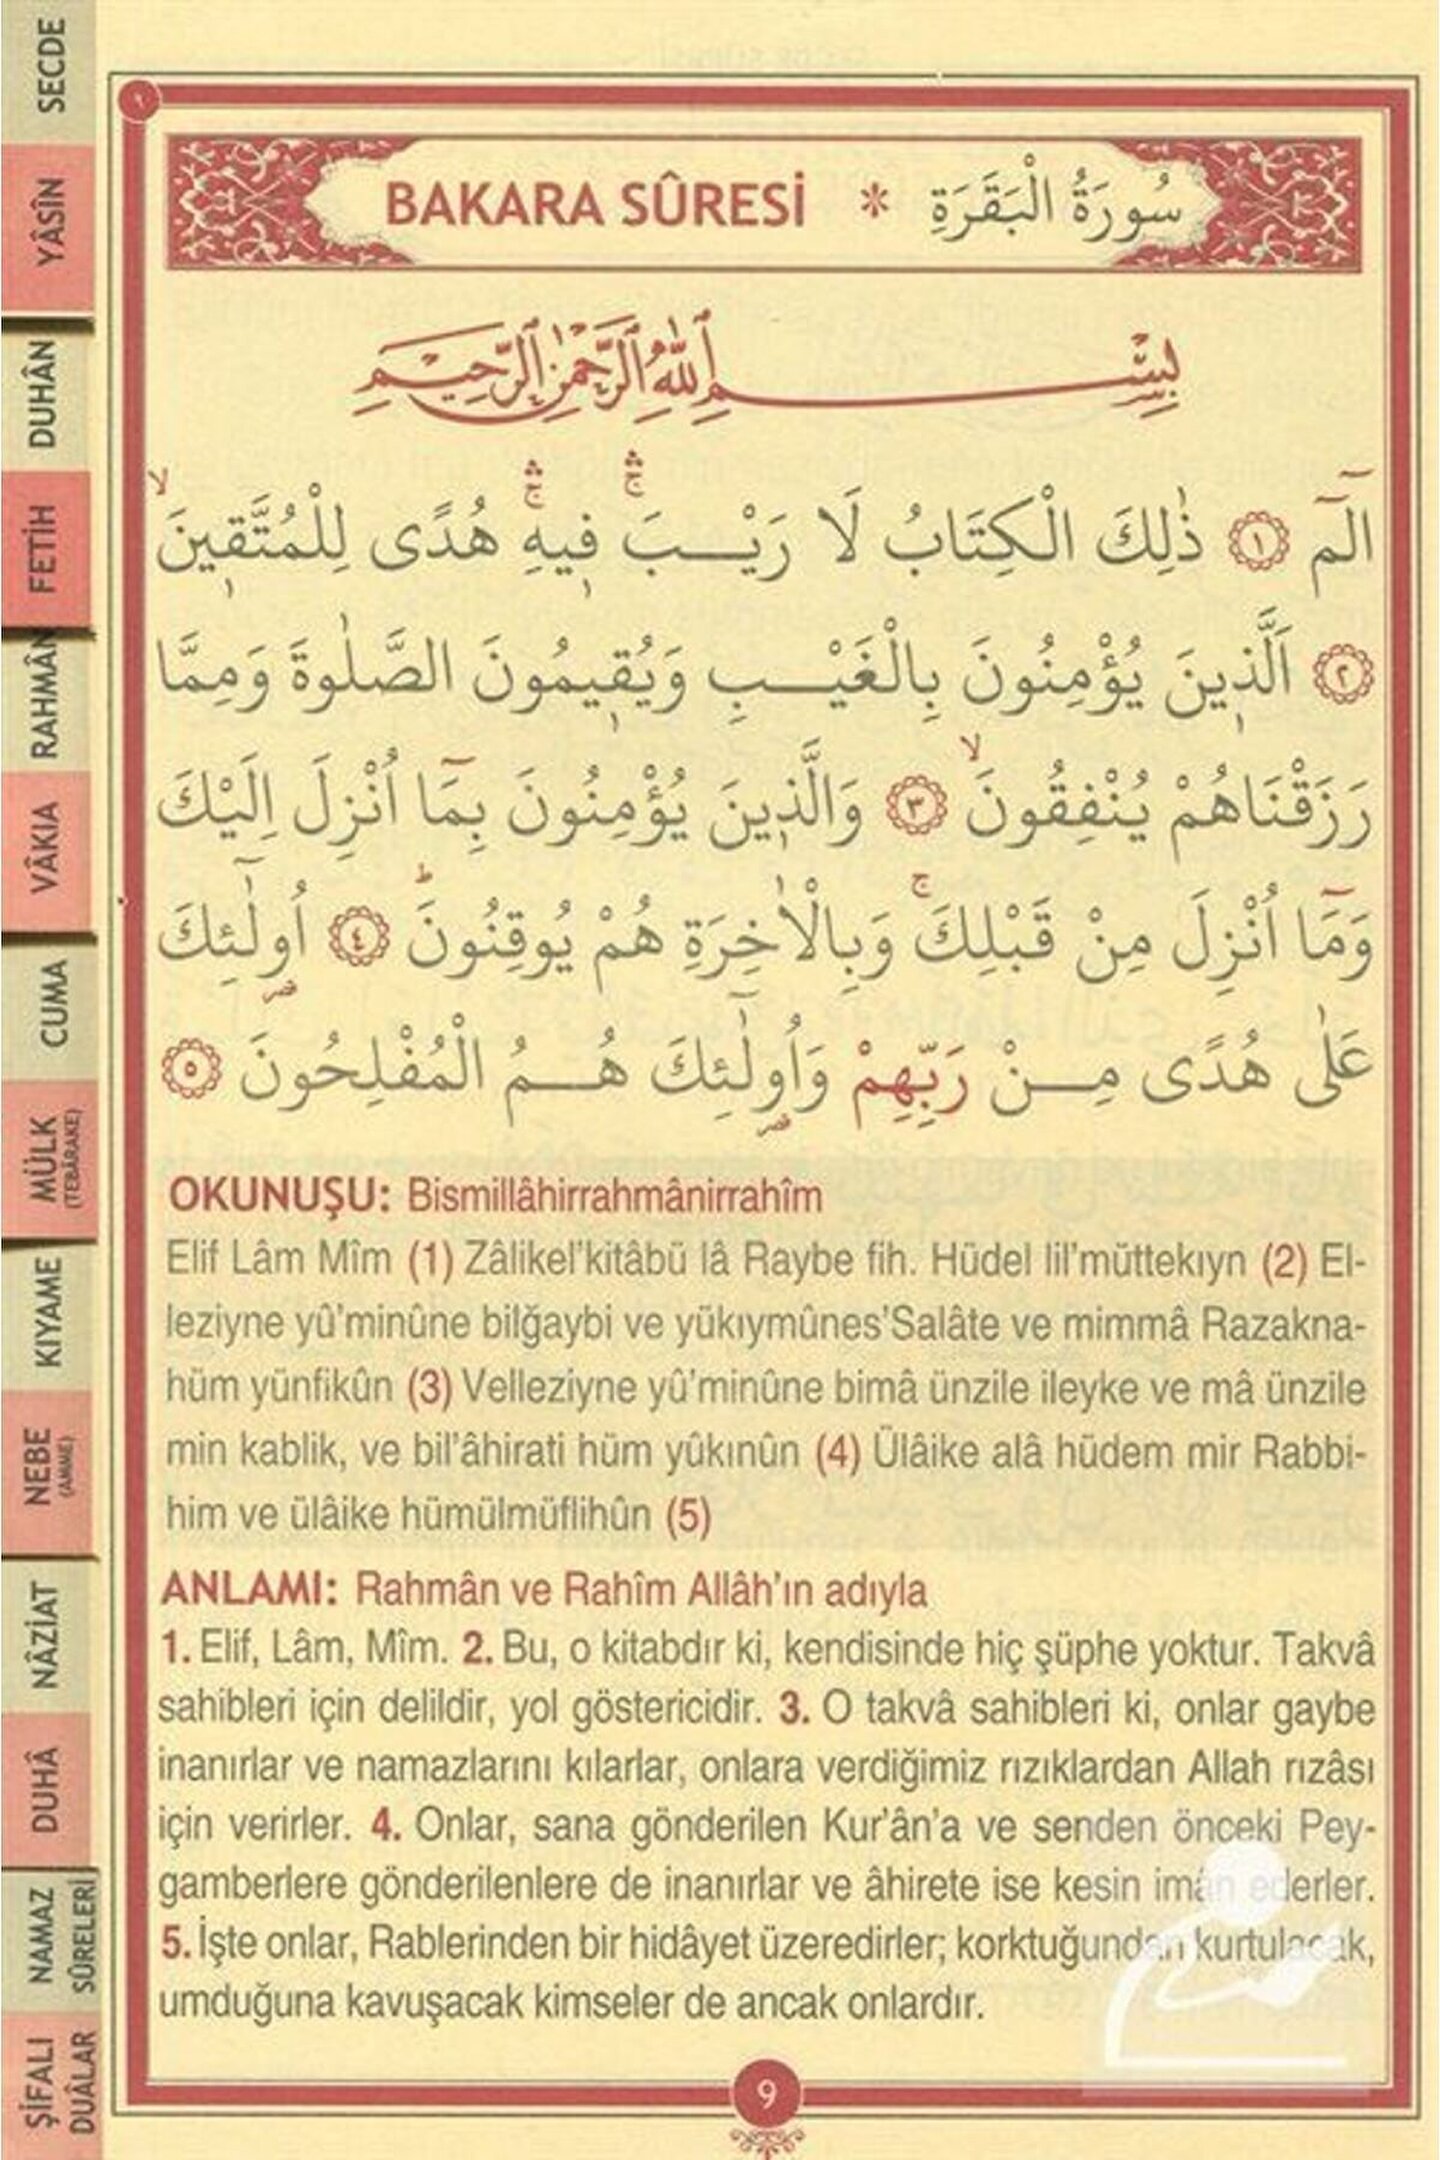 SECDE
YÂSÎN
DUHÂN
FETİH
RAHMÂN
VÂKIA
CUMA
MÜLK
(TEBÂRAKE)
KIYAME
NEBE
(AMME)
NÂZİAT
DUHÂ
NAMAZ
SÛRELERİ
ŞİFALI
DUÂLAR
٩
BAKARA SÛRESİ * سُورَةُ الْبَقَرَةِ
بِسْمِ اللّٰهِ الرَّحْمٰنِ الرَّحِيمِ
الٓمٓ ﴿١﴾ ذٰلِكَ الْكِتَابُ لَا رَيْبَۚۛ ف۪يهِۚۛ هُدًى لِلْمُتَّق۪ينَۙ
﴿٢﴾ اَلَّذ۪ينَ يُؤْمِنُونَ بِالْغَيْبِ وَيُق۪يمُونَ الصَّلٰوةَ وَمِمَّا
رَزَقْنَاهُمْ يُنْفِقُونَۙ ﴿٣﴾ وَالَّذ۪ينَ يُؤْمِنُونَ بِمَٓا اُنْزِلَ اِلَيْكَ
وَمَٓا اُنْزِلَ مِنْ قَبْلِكَۚ وَبِالْاٰخِرَةِ هُمْ يُوقِنُونَۜ ﴿٤﴾ اُو۬لٰٓئِكَ
عَلٰى هُدًى مِنْ رَبِّهِمْ وَاُو۬لٰٓئِكَ هُمُ الْمُفْلِحُونَ ﴿٥﴾
OKUNUŞU: Bismillâhirrahmânirrahîm
Elif Lâm Mîm (1) Zâlikel'kitâbü lâ Raybe fih. Hüdel lil'müttekıyn (2) El-
leziyne yû'minûne bilğaybi ve yükıymûnes'Salâte ve mimmâ Razakna-
hüm yünfikûn (3) Velleziyne yû'minûne bimâ ünzile ileyke ve mâ ünzile
min kablik, ve bil'âhirati hüm yûkınûn (4) Ülâike alâ hüdem mir Rabbi-
him ve ülâike hümülmüflihûn (5)
ANLAMI: Rahmân ve Rahîm Allâh'ın adıyla
1. Elif, Lâm, Mîm. 2. Bu, o kitabdır ki, kendisinde hiç şüphe yoktur. Takvâ
sahibleri için delildir, yol göstericidir. 3. O takvâ sahibleri ki, onlar gaybe
inanırlar ve namazlarını kılarlar, onlara verdiğimiz rızıklardan Allah rızâsı
için verirler. 4. Onlar, sana gönderilen Kur'ân'a ve senden önceki Pey-
gamberlere gönderilenlere de inanırlar ve âhirete ise kesin imân ederler.
5. İşte onlar, Rablerinden bir hidâyet üzeredirler; korktuğundan kurtulacak,
umduğuna kavuşacak kimseler de ancak onlardır.
9